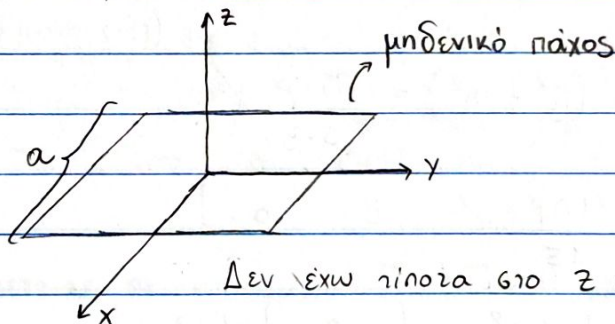 z
μηδενικό πάχος
a
y
Δεν έχω τίποτα στο z
x